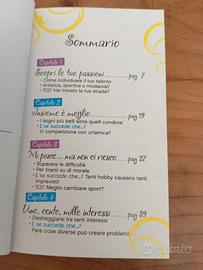 Sommario
Capitolo 1
Scopri le tue passioni pag 7
• Come individuare il tuo talento
• Artistica, sportiva o modaiola?
• TEST Hai trovato la tua strada?
Capitolo 2
Insieme è meglio pag 19
• I sogni più belli sono quelli condivisi
• E se succede che...?
In competizione con un'amica?
Capitolo 3
Mi piace... ma non ci riesco pag 27
• Difficoltà
• Per tirarsi su di morale
• E se succede che...? Tanti hobby causano tanti
imprevisti!
• TEST Meglio cambiare sport?
Capitolo 4
Uno, cento, mille interessi pag 39
• Destreggiarsi tra tanti interessi
• E se succede che...?
Fare cose diverse può creare problemi
Subito